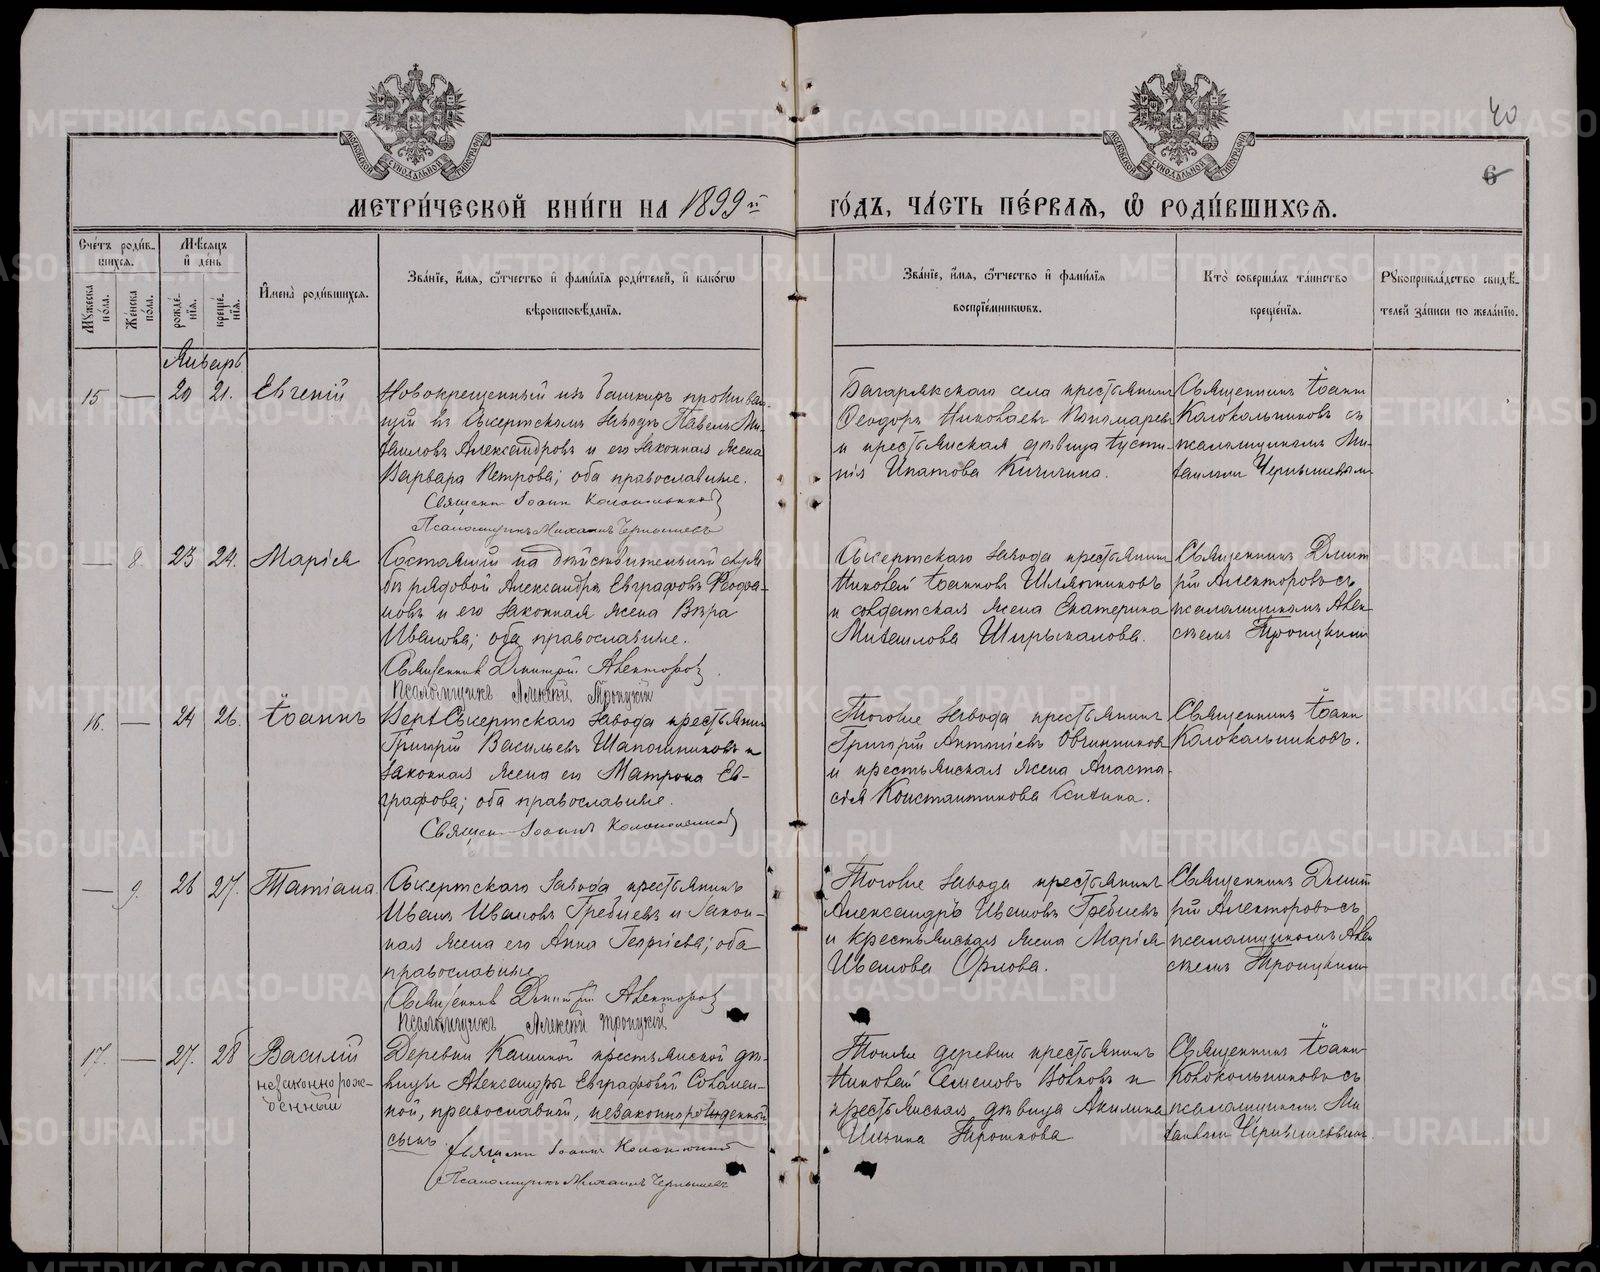 40
6
МЕТРИ́ЧЕСКОЙ КНИ́ГИ НА 1899й ГО́ДЪ, ЧА́СТЬ ПЕ́РВАѦ, Ѡ РОДИ́ВШИХСѦ.
Сче́тъ роди́в-
шихся.
Мѣ́сяцъ
и де́нь
Мꙋ́жеска по́ла.
Же́нска по́ла.
рожде́-
нїя.
креще́-
нїя.
И҆мена̀ роди́вшихся.
Зва́нїе, и҆́мя, ѻ҆́тчество и҆ фами́лїя роди́телей, и҆ како́гѡ
вѣроисповѣ́данїя.
Зва́нїе, и҆́мя, ѻ҆́тчество и҆ фами́лїя
воспрїе́мникѡвъ.
Кто̀ соверша́лъ та́инство
креще́нїя.
Рꙋкоприкла́дство свидѣ́-
телей за́писи по жела́нїю.
Январь
15 — 20 21. Евгеній
Новокрещенный изъ башкиръ прожываю-
щій въ Сысертскомъ заводѣ Павелъ Ми-
хаиловъ Александровъ и его законная жена
Варвара Петрова; оба православные.
Священ. Іоаннъ Колокольников
Псаломщикъ Михаилъ Чернышевъ
Багарякскаго села крестьянинъ
Ѳеодоръ Николаевъ Пономаревъ
и крестьянская дѣвица Іусти-
нія Ипатова Кичигина.
Священникъ Іоаннъ
Колокольниковъ съ
псаломщикомъ Ми-
хаиломъ Чернышевымъ
— 8. 23 24. Марія
Состоящій на дѣйствительной служ
бѣ рядовой Александръ Евграфовъ Ѳеофа-
новъ и его законная жена Вѣра
Иванова; оба православные.
Священник Димитрій Алекторов.
Псаломщикъ Алексій Троицкій
Сысертскаго завода крестьянинъ
Николай Іоанновъ Шляпниковъ
и солдатская жена Екатерина
Михаилова Ширыкалова.
Священникъ Димит
рій Алекторовъ съ
псаломщикомъ Алек-
сѣемъ Троицкимъ
16. — 24 26. Іоаннъ
ВерхСысертскаго завода крестьянинъ
Григорій Васильевъ Шапошниковъ и
законная жена его Матрона Ев-
графова; оба православные.
Священ. Іоаннъ Колокольников
Тогоже завода крестьянинъ
Григорій Антоніевъ Овчинниковъ
и крестьянская жена Анаста-
сія Константинова
Священникъ Іоаннъ
Колокольниковъ.
— 9. 26 27. Татіана
Сысертскаго завода крестьянинъ
Иванъ Ивановъ Гребневъ и закон-
ная жена его Анна Георгіева; оба
православные
Священник Димитрій Алекторов
Псаломщикъ Алексій Троицкій
Тогоже завода крестьянинъ
Александръ Ивановъ Гребневъ
и крестьянская жена Марія
Иванова Орлова.
Священникъ Димит
рій Алекторовъ съ
псаломщикомъ Алек
сѣемъ Троицкимъ
17. — 27. 28 Василій
незаконнорож-
денный
Деревни Кашиной крестьянской дѣ-
вицы Александры Евграфовой
православной, незаконнорожденный
сынъ.
Священ. Іоаннъ Колокольников
Псаломщикъ Михаилъ Чернышевъ
Тойже деревни крестьянинъ
Николай Семеновъ Волковъ и
крестьянская дѣвица Акилина
Ильина Трошкова
Священникъ Іоаннъ
Колокольниковъ съ
псаломщикомъ Ми
хаиломъ Чернышевымъ.
METRIKI.GASO-URAL.RU